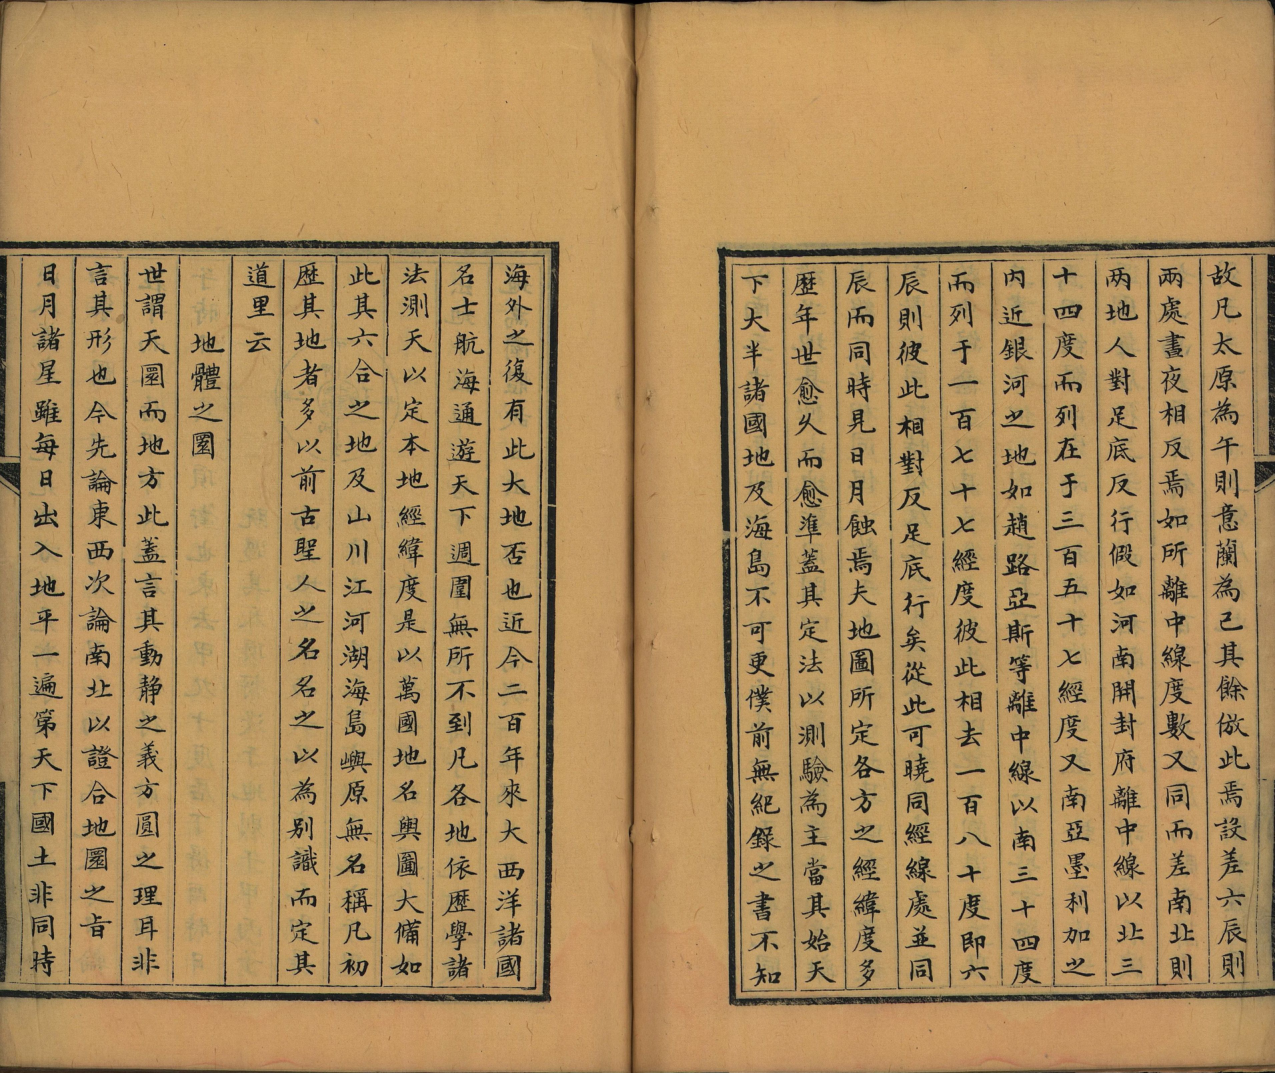 故凡太原為午則意蘭為己其餘倣此焉設差六辰則
兩處晝夜相反焉如所離中線度數又同而差南北則
两地人對足底反行假如河南開封府離中線以北三
十四度而列在于三百五十七經度又南亞墨利加之
内近銀河之地如趙路亞斯等離中線以南三十四度
而列于一百七十七經度彼此相去一百八十度即六
辰則彼此相對反足底行矣從此可曉同經線處並同
辰而同時見日月蝕焉夫地圖所定各方之經緯度多
歷年世愈久而愈準蓋其定法以測驗為主當其始天
下大半諸國地及海島不可更僕前無紀録之書不知
海外之復有此大地否也近今二百年來大西洋諸國
名士航海通遊天下週圍無所不到凡各地依歷學諸
法測天以定本地經緯度是以萬國地名輿圖大備如
此其六合之地及山川江河湖海島嶼原無名稱凡初
歷其地者多以前古聖人之名名之以為別識而定其
道里云
地體之圜
世謂天圜而地方此蓋言其動靜之義方圓之理耳非
言其形也今先論東西次論南北以證合地圜之旨
日月諸星雖每日出入地平一遍第天下國土非同時